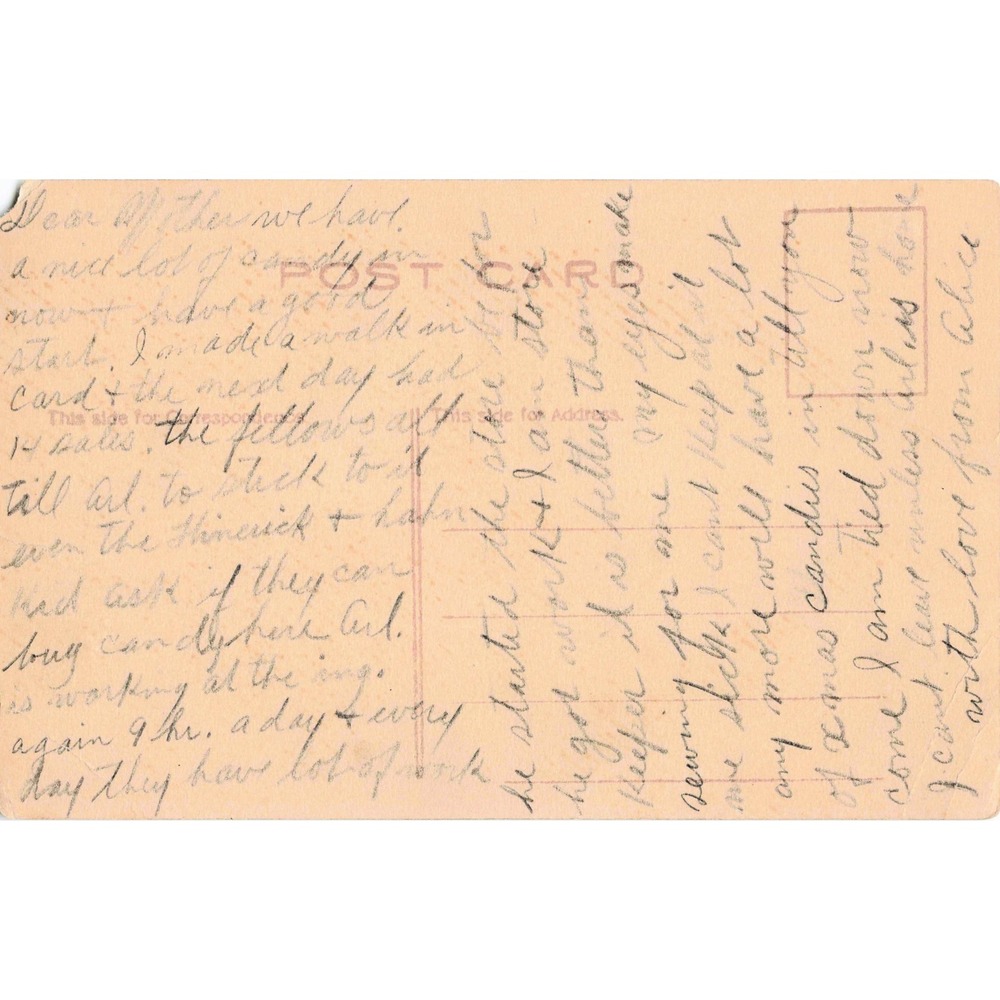 POST CARD
This side for Correspondence.
This side for Address.
Dear Mother we have
a nice lot of candy in
now + have a good
start. I made a walk in
card + the next day had
14 sales. the fellows all
till Arl. to stick to it
even the + hahn
Kid ask if they can
buy candy here Arl.
is working at the ing.
again 9 hr. a day + every
day they have lot of work
he started the store before
he got work + I am store
keeper it is better than
sewing for me my eyes make
me sick I cant keep at it
any more will have a lot
of Xmas candies in till you
come I am tied down now
I cant leave unless Arl is home
with love from Alice